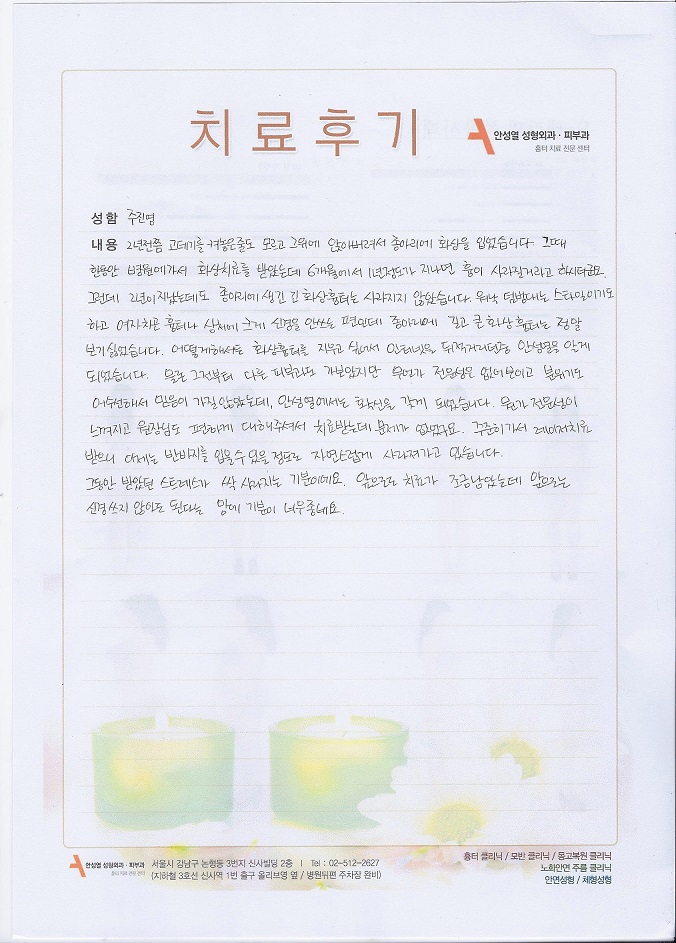 치료후기
안성열 성형외과 · 피부과
흉터 치료 전문 센터
성함 주진영
내용 2년전쯤 고데기를 켜놓은줄도 모르고 그위에 앉아버려서 종아리에 화상을 입었습니다. 그때
한동안 병원에가서 화상치료를 받았는데 6개월에서 1년정도가 지나면 흉이 사라질거라고 하시더군요.
그런데 2년이 지났는데도 종아리에 생긴 긴 화상흉터는 사라지지 않았습니다. 워낙 덤벙대는 스타일이기도
하고 여자치곤 흉터나 상처에 크게 신경을 안쓰는 편인데 종아리에 길고 큰 화상흉터는 정말
보기싫었습니다. 어떻게해서든 화상흉터를 지우고 싶어서 인터넷을 뒤적거리던중 안성열을 알게
되었습니다. 물론 그전부터 다른 피부과도 가보았지만 뭔가 전문성은 없어보이고 분위기도
어수선해서 믿음이 가질 않았는데, 안성열에서는 확신을 갖게 되었습니다. 뭔가 전문성이
느껴지고 원장님도 편하게 대해주셔서 치료받는데 문제가 없었구요. 꾸준히가서 레이저치료
받으니 이제는 반바지를 입을수 있을 정도로 자연스럽게 사라져가고 있습니다.
그동안 받았던 스트레스가 싹 사라지는 기분이에요. 앞으로도 치료가 조금남았는데 앞으로는
신경쓰지 않아도 된다는 맘에 기분이 너무좋네요.
안성열 성형외과 · 피부과
흉터 치료 전문 센터
서울시 강남구 논현동 3번지 신사빌딩 2층 | Tel : 02-512-2627
(지하철 3호선 신사역 1번 출구 올리브영 옆 / 병원뒤편 주차장 완비)
흉터 클리닉 / 모반 클리닉 / 몽고복원 클리닉
노화안면 주름 클리닉
안면성형 / 체형성형